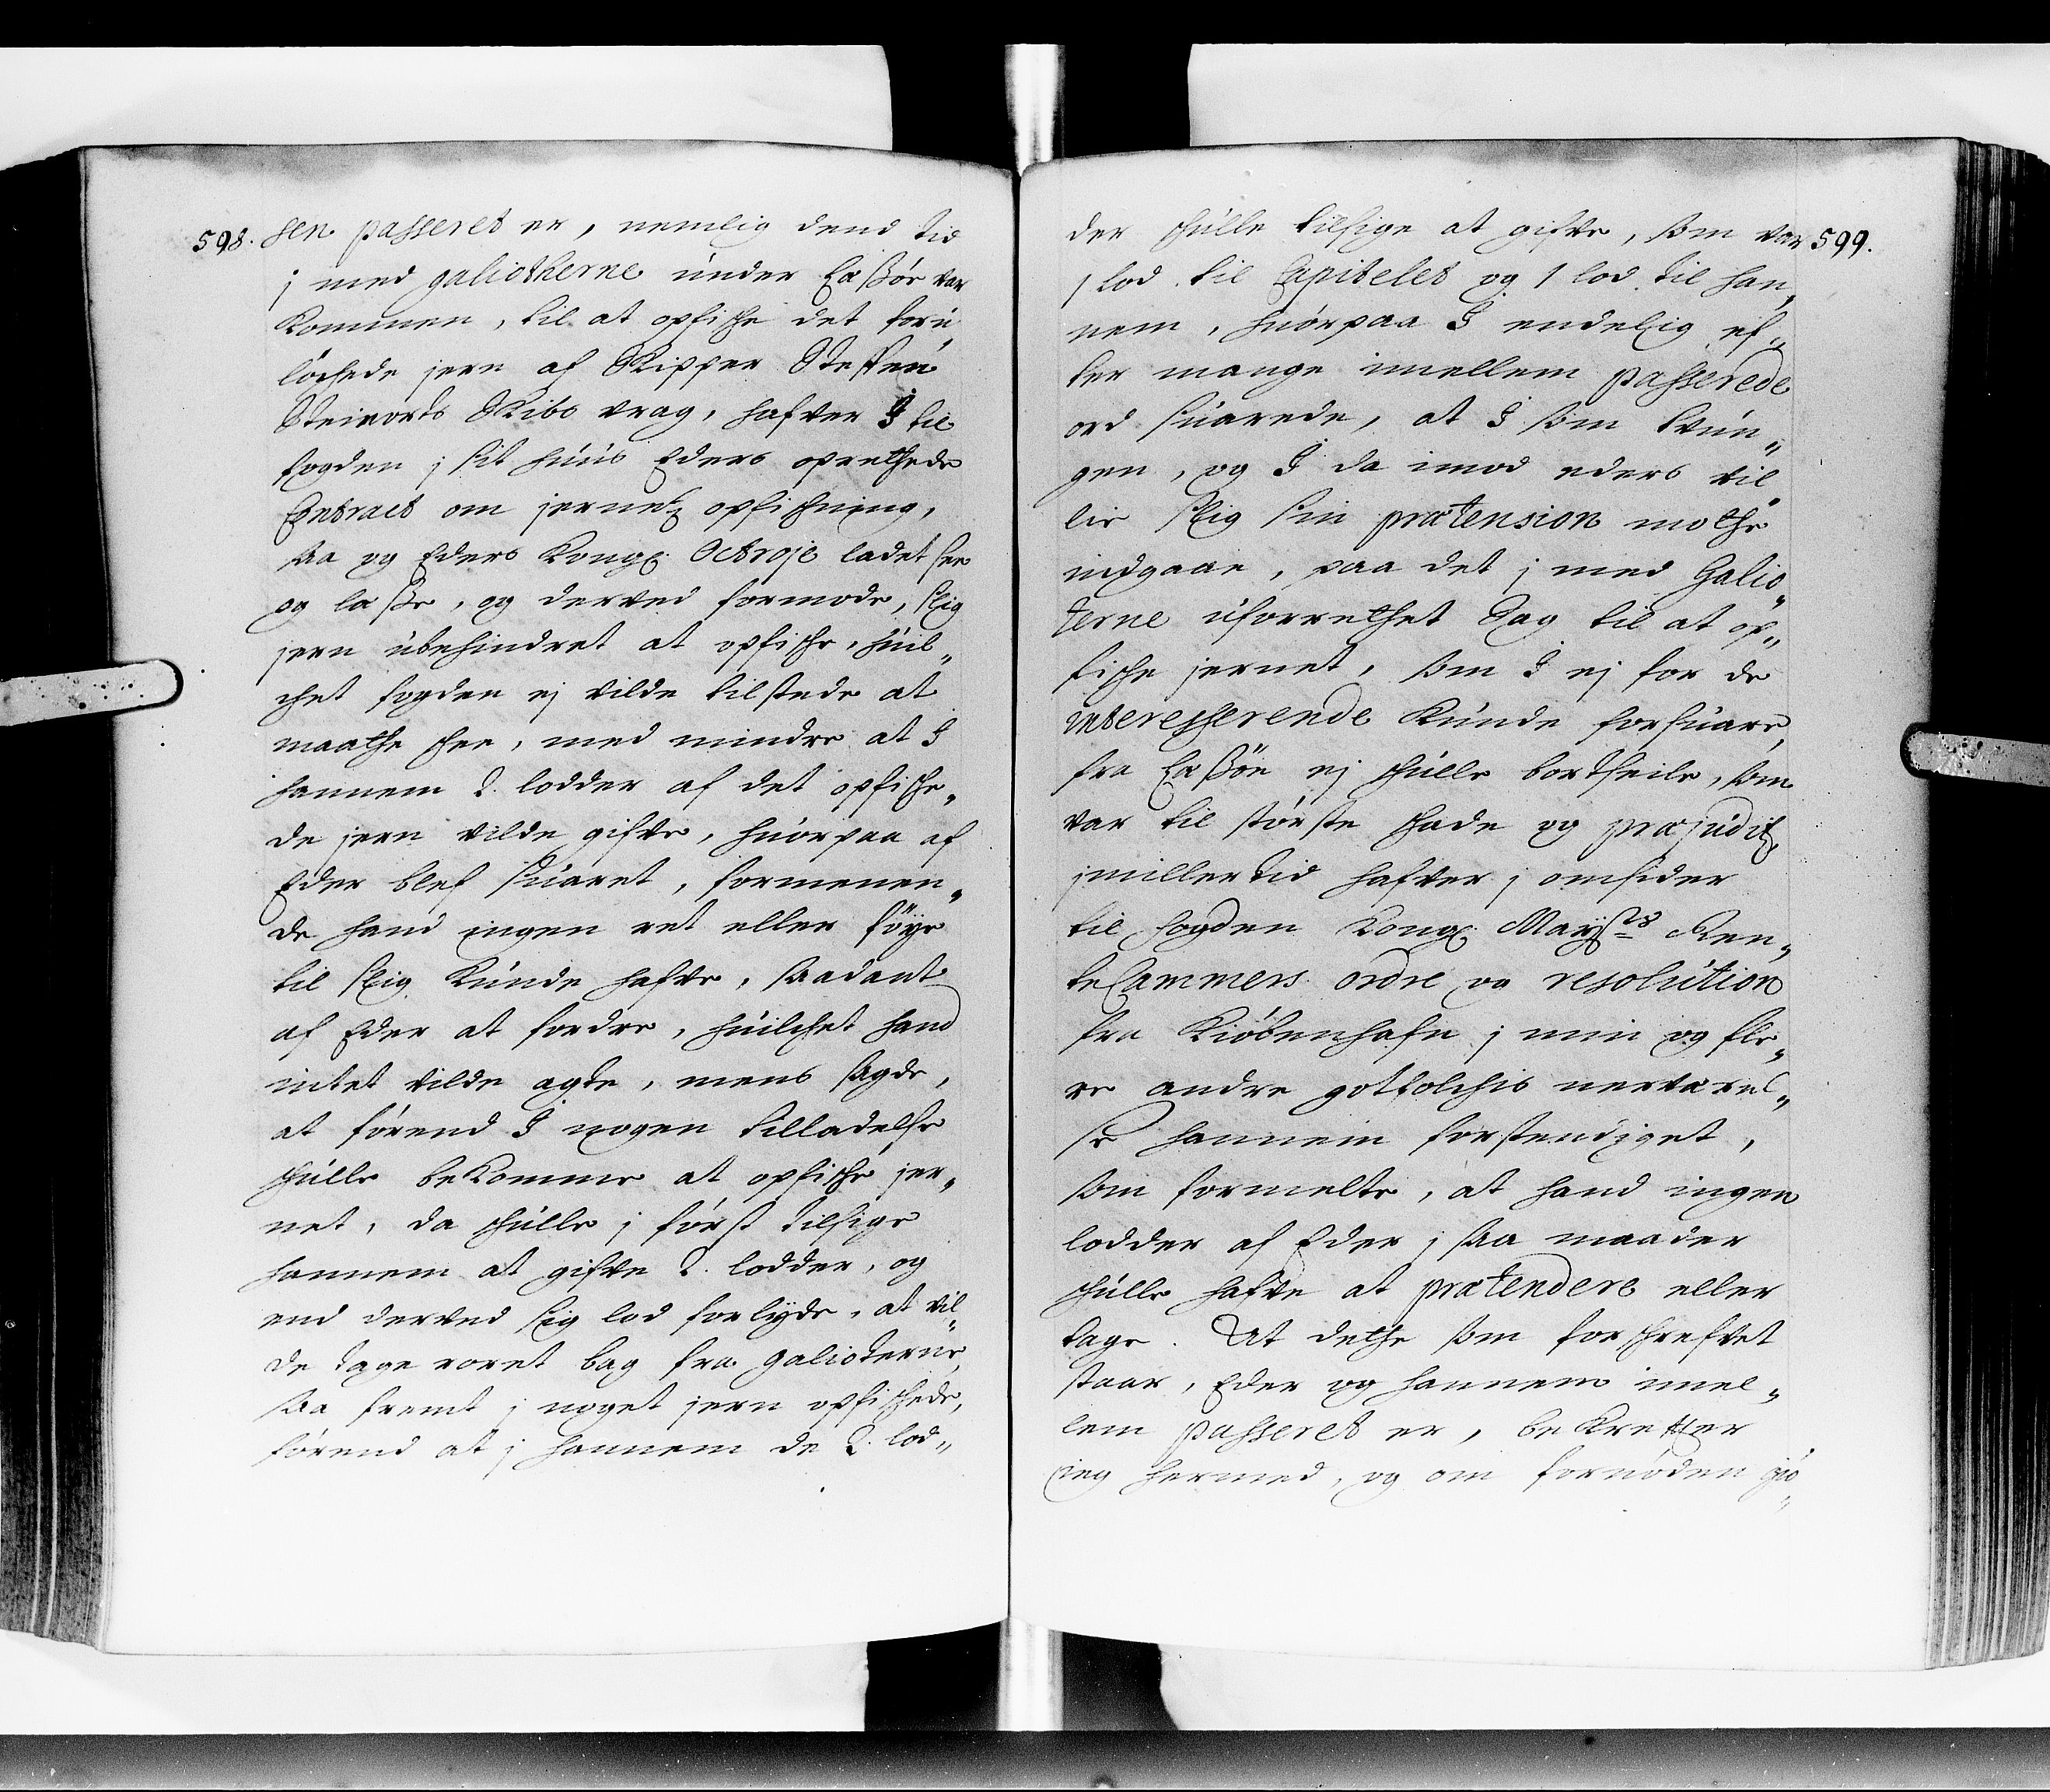 598.
sen passeret er, nemlig dend tid
j med galiotherne under Læssøe var
kommen, til at opfische det foru„
löchede jern af Skipper Steffen
Steinorts Skibs vrag, hafver I til
fogden j sit huus Eders oprethede
Contract om jernetz opfischning,
saa og Eders Kongl: Octroje ladet see
og læsse, og derved formode, slig
jern ubehindret at opfische, huil„
chet fogden ej vilde tilstede at
maatte schee, med mindre at I
hannem 2. lodder af det opfische„
de jern vilde gifve, huorpaa af
Eder blef suaret, formenen„
de hand ingen ret eller föye
til slig kunde hafve, saadant
af Eder at fordre, huilchet hand
intet vilde agte, mens sagde,
at förend I nogen tilladelse
schulle bekomme at opfische jer„
net, da schulle j först tilsige
hannem at gifve 2. lodder, og
end derved sig lod forlyde, at vil„
de tage roret bag fra galioterne,
saa fremt j noget jern opfischede,
förend at j hannem de 2. lod„
599.
der schulle tilsige at gifve, som var
1 lod til Capitelet og 1 lod til han„
nem, huorpaa I endelig ef„
ter mange imellem passerede
ord suarede, at I som tvun„
gen, og I da imod eders vil„
lie slig sin prætension motte
indgaae, paa det j med Galio„
terne uforrethet Sag til at op„
fische jernet, som I ej for de
interesserende kunde forsuare,
fra Læssöe ej schulle bortseile, som
var til störste schade og præjuditz,
jmillertid hafver j omsider
til fogden Kongl: Mayts Ren„
teCammers ordre og resolution
fra Kiöbenhafn j min og fle„
re andre gotfolchis nerværel„
se hannem forstendiget,
som formelte, at hand ingen
lodder af Eder j saa maader
schulle hafve at prætendere eller
tage. At dette som forschrefvet
staar, Eder og hannem imel„
lem passeret er, bekrefter
jeg hermed, og om fornöden giö„